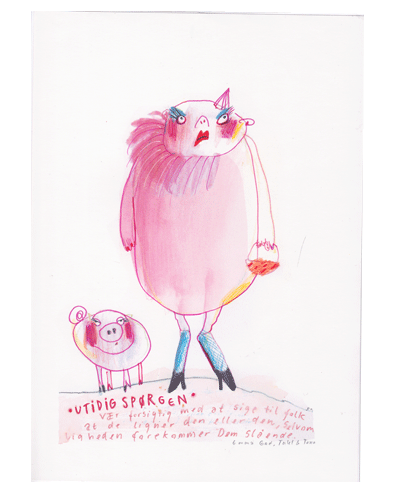 •UTIDIG SPØRGEN•
Vær forsigtig med at sige til folk
at de ligner den eller den, selvom
ligheden forekommer Dem slående.
Emma Gad, Takt & Tone